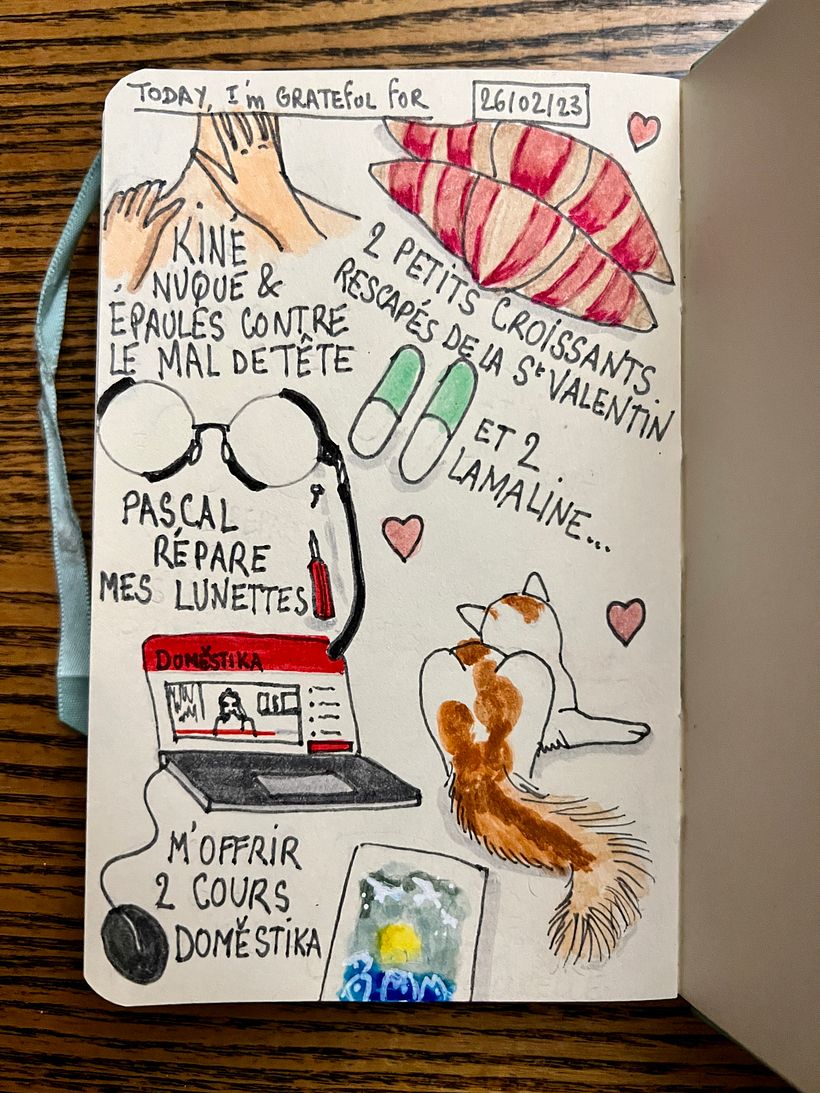 TODAY, I'm GRATEFUL FOR
26/02/23
KINÉ
NUQUE &
ÉPAULES CONTRE
LE MAL DE TÊTE
2 PETITS CROISSANTS
RESCAPÉS DE LA St VALENTIN
ET 2
LAMALINE...
PASCAL
RÉPARE
MES LUNETTES
DOMĚSTIKA
M'OFFRIR
2 COURS
DOMĚSTIKA